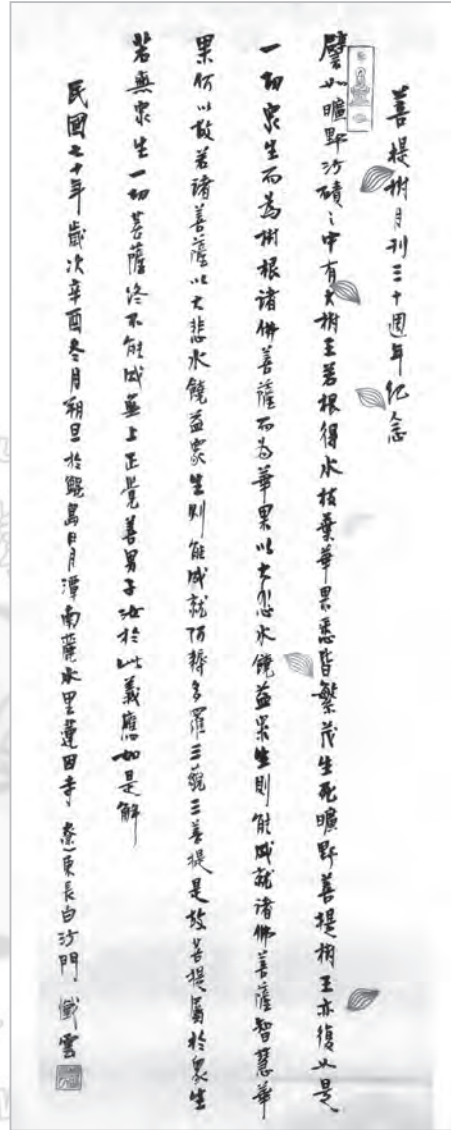 菩提樹月刊三十週年紀念
譬如曠野沙磧之中有大樹王若根得水枝葉華果悉皆繁茂生死曠野菩提樹王亦復如是
一切眾生而為樹根諸佛菩薩而為華果以大悲水饒益眾生則能成就諸佛菩薩智慧華
果何以故若諸菩薩以大悲水饒益眾生則能成就阿耨多羅三藐三菩提是故菩提屬於眾生
若無眾生一切菩薩終不能成無上正覺善男子汝於此義應如是解
民國七十年歲次辛酉冬月朔旦於鯤島日月潭南麓水里蓮因寺 遼東長白沙門 懺雲